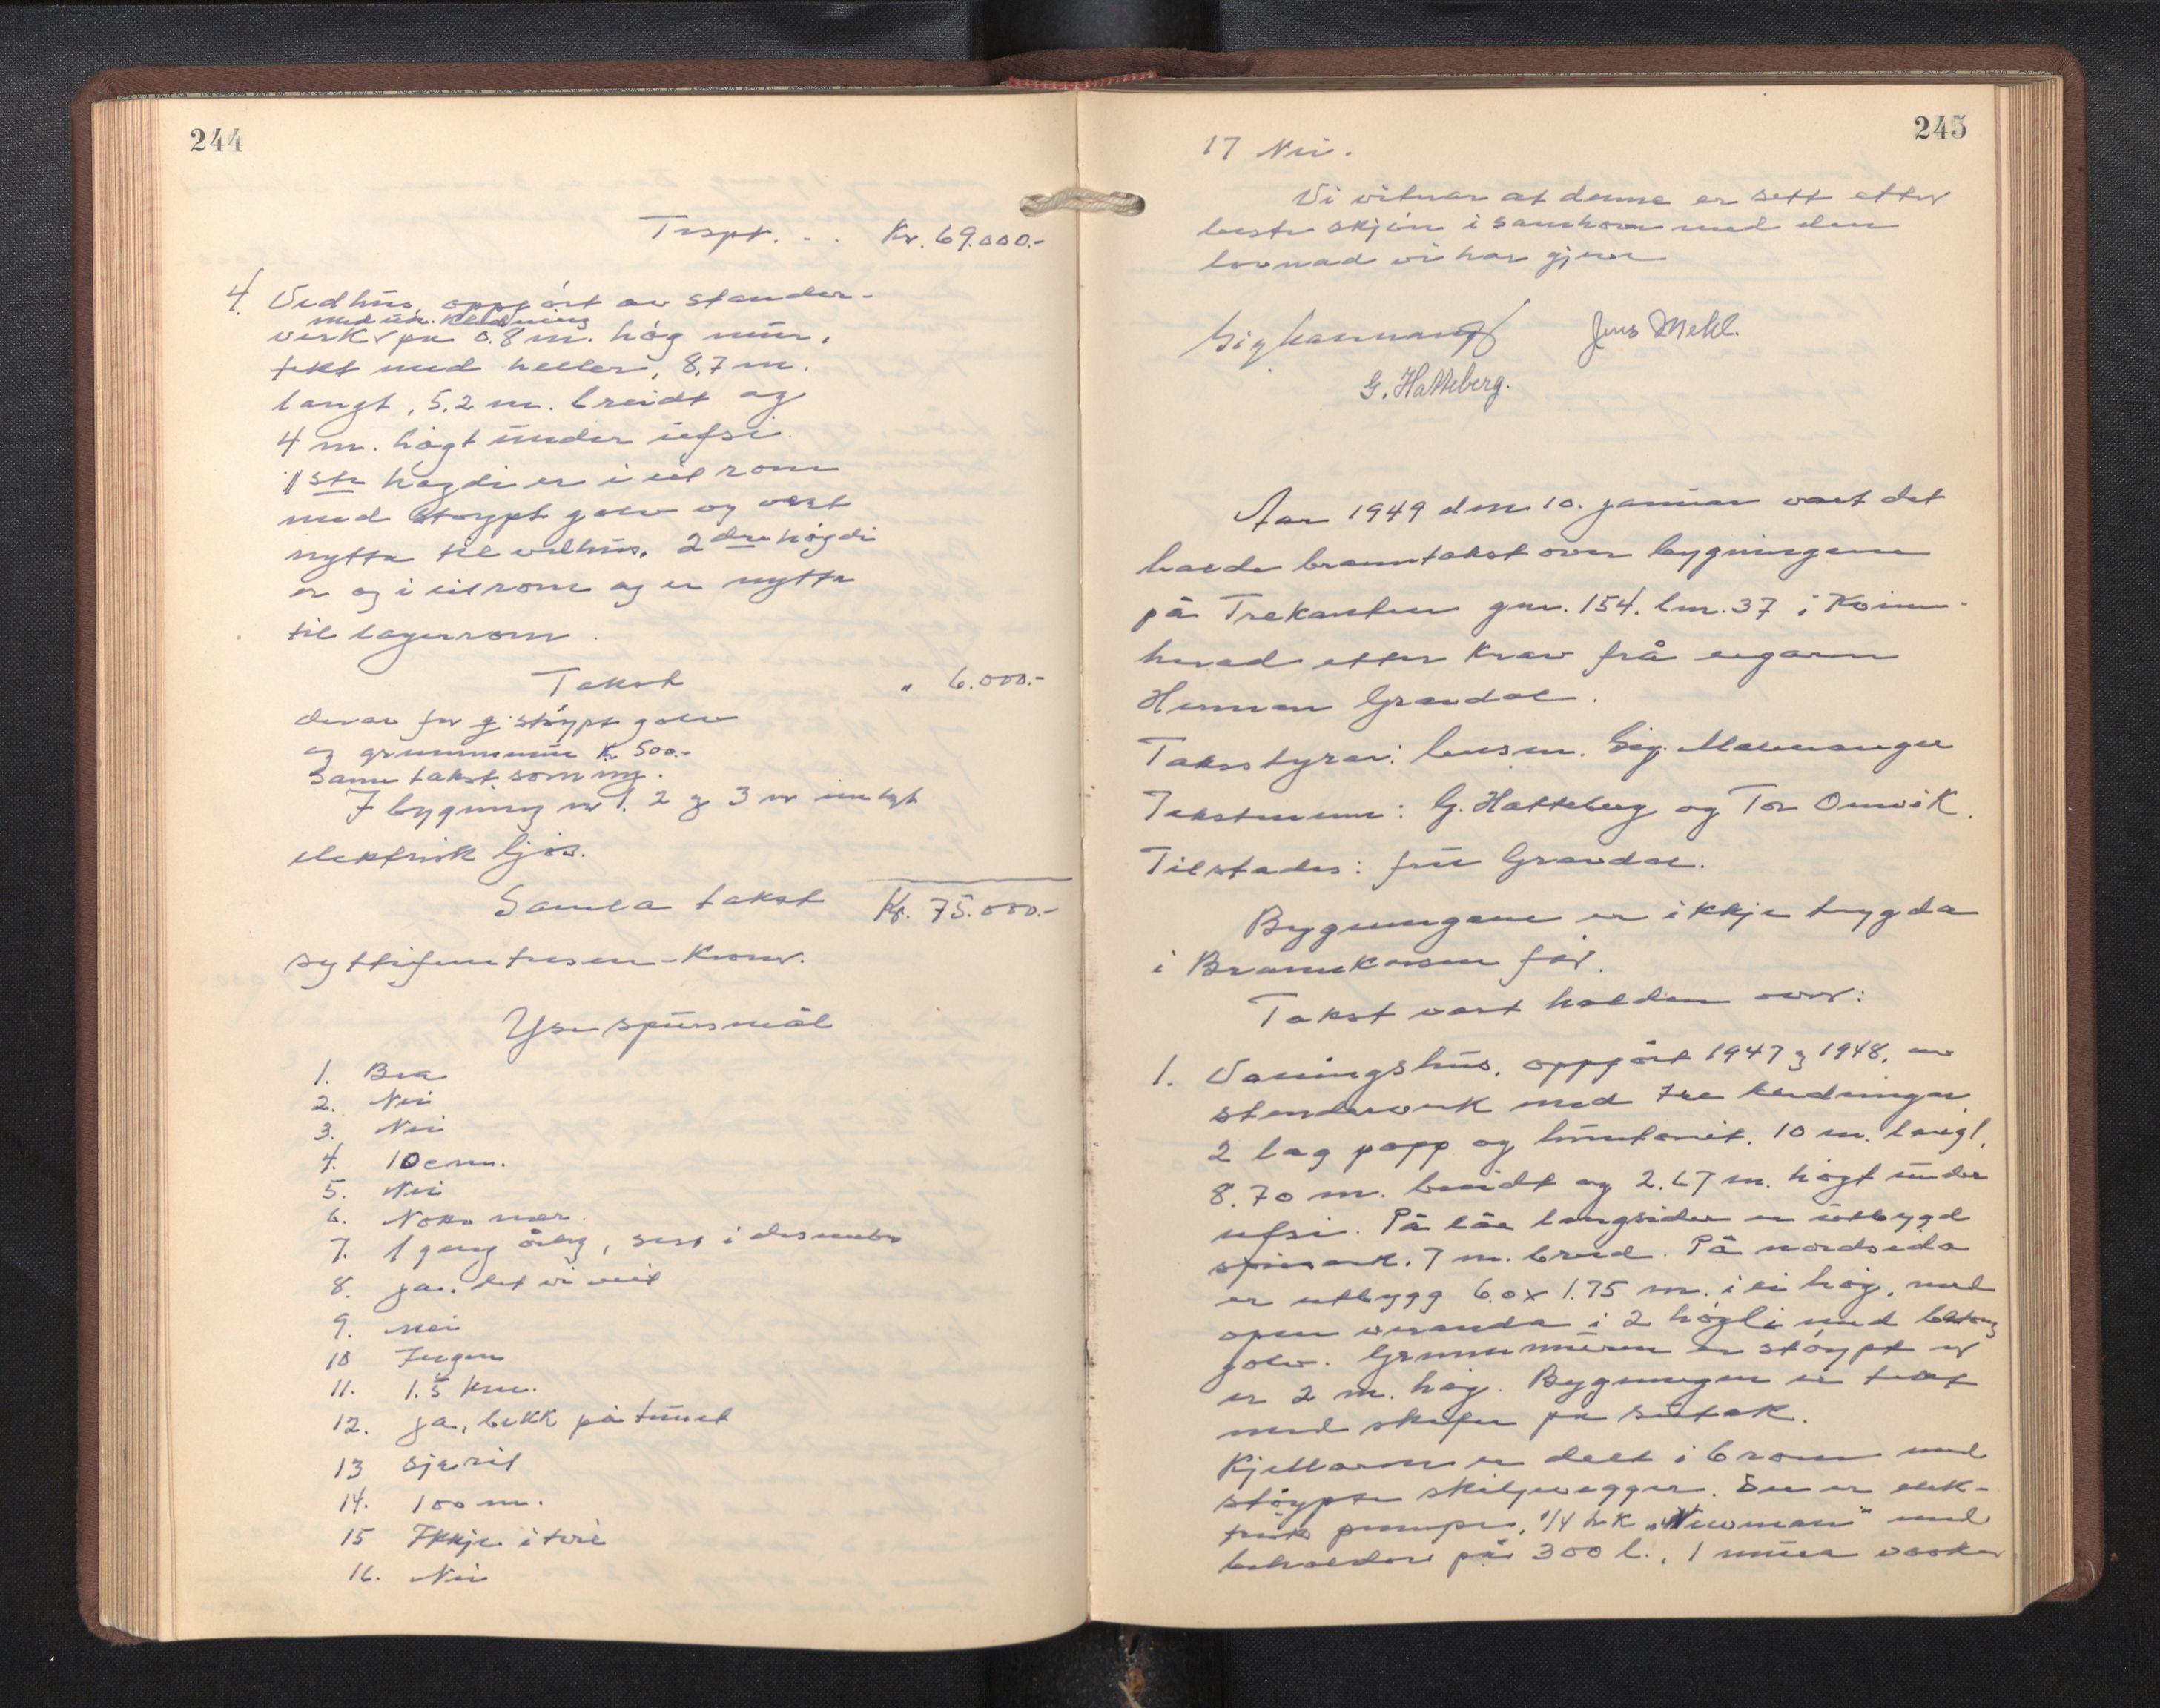 244
Trspt. . . Kr. 69.000.-
4. Vedhus, oppført av stender-
med utv. kledning
verk på 0.8 m. høg mur,
tekt med heller, 8,7 m.
langt, 5.2 m. breidt og
4 m. høgt under ufsi.
1ste høgdi er i eit rom
med støypt golv og vert
nytta til vedhus. 2dre høgdi
er og i eit rom og er nytta
til lagerrom.
Takst " 6.000.-
derav for g. støypt golv
og grunnmur kr 500.-
Same takst som ny.
I bygning nr 1. 2 og 3 er innlagt
elektrisk ljos.
Samla takst Kr. 75.000.-
syttifemtusen-Kroner.
Ymse spursmål
1. Bra
2. Nei
3. Nei
4. 10 cm.
5. Nei
6. Noko mer.
7. 1 gang årleg, sist i desember
8. ja. det vi veit
9. nei
10 Ingen
11. 1.5 km.
12. ja, bekk på tunet
13 sjeteit
14. 100 m.
15 Ikkje i tvil
16. Nei
245
17 Nei.
Vi vitnar at denne er sett etter
beste skjøn i samhøve med den
lovnad vi har gjeve
Sig Malmanger Jens Mehl.
G. Hatteberg.
Aar 1949 den 10. januar vart det
halde branntakst over bygningane
på Trekanten gnr. 154. bnr. 37 i Kvinn-
herad etter krav frå eigaren
Herman Gravdal.
Takststyrar: lensm. Sig. Malmanger
Takstmenn: G. Hatteberg og Tor Omvik.
Tilstades: fru Gravdal.
Bygningane er ikkje trygda
i Brannkassen før.
Takst vart halden over:
1. Vaaningshus, oppført 1947 og 1948, av
stenderverk med tre kledningar
2 lag papp og huntonit. 10 m. langt,
8.70 m. breidt og 2.67 m. høgt under
ufsi. På båe langsider er utbygd
ark. 7 m. breid. På nordsida
er utbygg 6.0 x 1.75 m. i ei høg. med
open veranda i 2 høgdi med betong
golv. Grunnmuren er støypt og
er 2 m. høg. Bygningen er tekt
med skifer på sutak.
Kjellaren er delt i 6 rom med
støypte skiljevegger. Der er elek-
trisk pumpe, 1/4 h k „Newman" med
behaldar på 300 l., 1 mura vaske